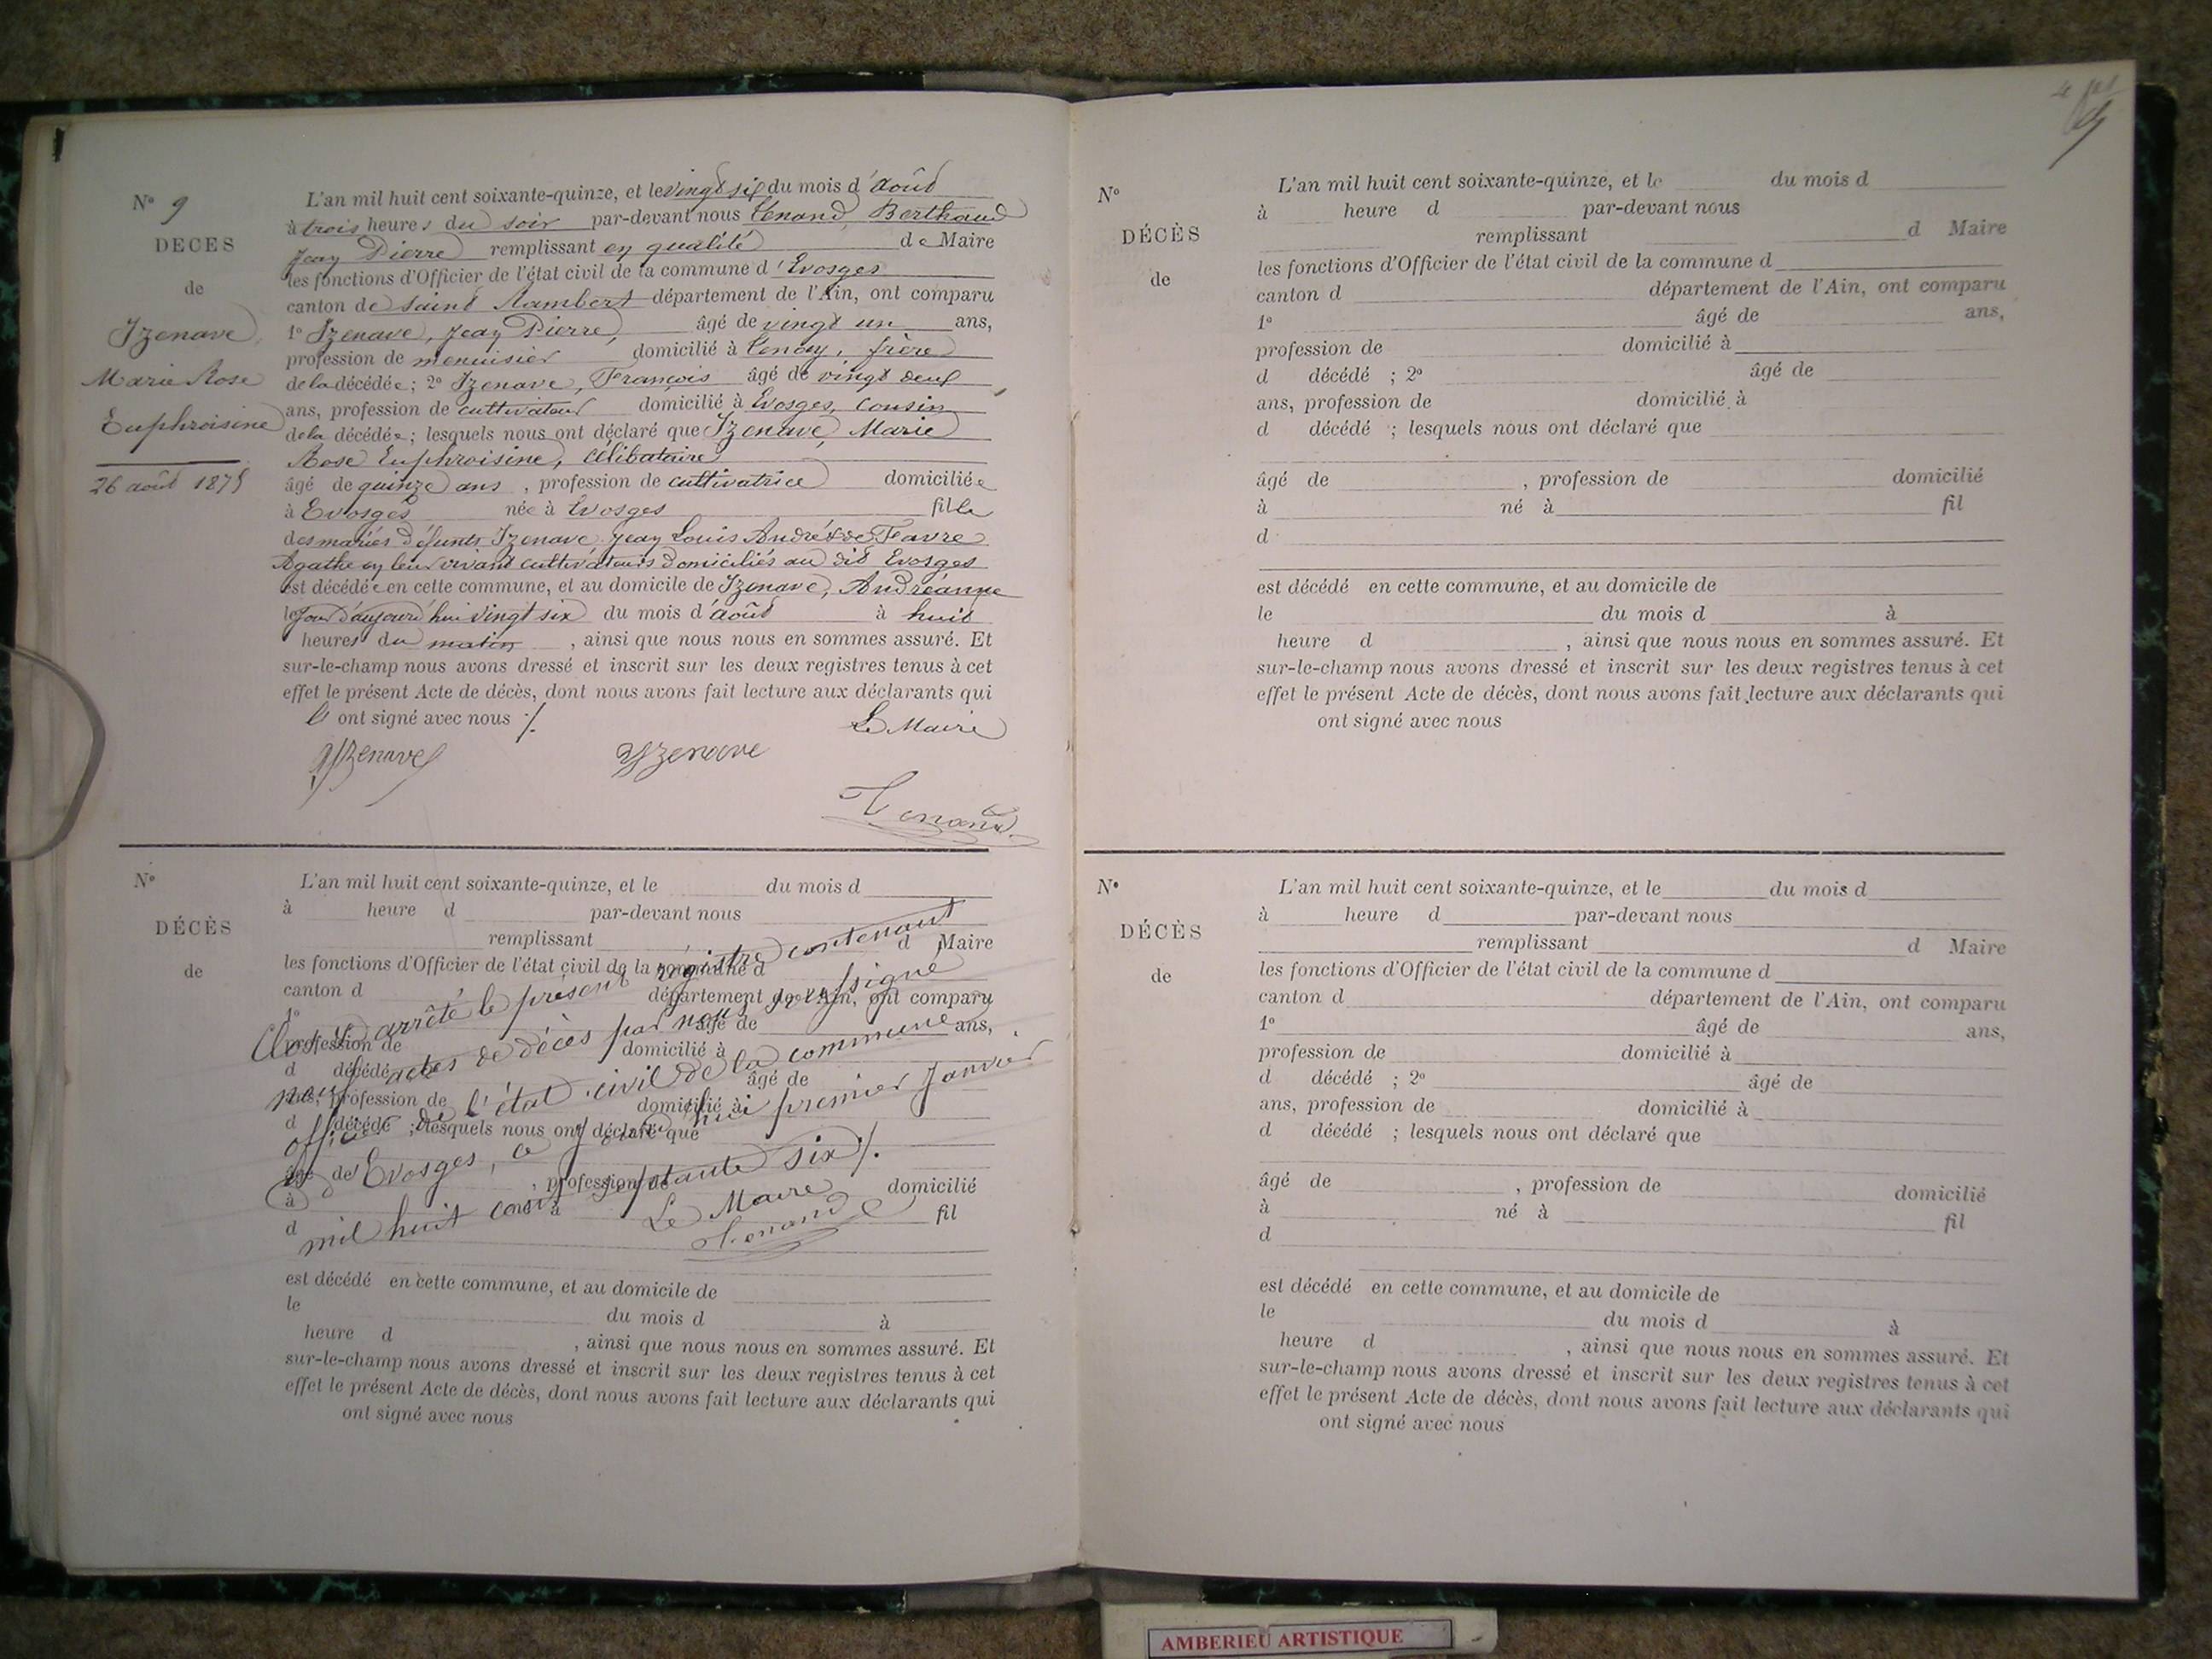 N° 9
DECES
de
Izenave,
Marie Rose
Euphroisine
26 août 1875
L'an mil huit cent soixante-quinze, et le vingt six du mois d'août
à trois heures du soir par-devant nous Tenand, Berthaud
Jean Pierre remplissant en qualité de Maire
les fonctions d'Officier de l'état civil de la commune d'Evosges
canton de Saint Rambert département de l'Ain, ont comparu
1° Izenave, Jean Pierre, âgé de vingt un ans,
profession de menuisier domicilié à Tenay, frère
de la décédée; 2° Izenave, François âgé de vingt deux
ans, profession de cultivateur domicilié à Evosges, cousin
de la décédée; lesquels nous ont déclaré que Izenave, Marie
Rose Euphroisine, célibataire
âgé de quinze ans, profession de cultivatrice domiciliée
à Evosges née à Evosges fille
des mariés défunts Izenave Jean Louis André & de Favre
Agathe en leur vivant cultivateurs domiciliés au dit Evosges
est décédée en cette commune, et au domicile de Izenave, Andréanne
le jour d'aujourd'hui vingt six du mois d'août à huit
heures du matin, ainsi que nous nous en sommes assuré. Et
sur-le-champ nous avons dressé et inscrit sur les deux registres tenus à cet
effet le présent Acte de décès, dont nous avons fait lecture aux déclarants qui
ont signé avec nous ./.
Le Maire
Yzenave Yzenave
Tenand
N°
DÉCÈS
de
L'an mil huit cent soixante-quinze, et le du mois d
à heure d par-devant nous
remplissant d Maire
les fonctions d'Officier de l'état civil de la commune d
canton d département de l'Ain, ont comparu
1° âgé de ans,
profession de domicilié à
d décédé ; 2° âgé de
ans, profession de domicilié à
d décédé ; lesquels nous ont déclaré que
âgé de , profession de domicilié
à né à fil
d
est décédé en cette commune, et au domicile de
le du mois d à
heure d , ainsi que nous nous en sommes assuré. Et
sur-le-champ nous avons dressé et inscrit sur les deux registres tenus à cet
effet le présent Acte de décès, dont nous avons fait lecture aux déclarants qui
ont signé avec nous
Clos et arrêté le présent registre contenant
neuf actes de décès par nous soussigné
officier de l'état civil de la commune
d'Evosges, ce jourd'hui premier Janvier
mil huit cent septante six ./.
Le Maire
Tenand
N°
DÉCÈS
de
L'an mil huit cent soixante-quinze, et le du mois d
à heure d par-devant nous
remplissant d Maire
les fonctions d'Officier de l'état civil de la commune d
canton d département de l'Ain, ont comparu
1° âgé de ans,
profession de domicilié à
d décédé ; 2° âgé de
ans, profession de domicilié à
d décédé ; lesquels nous ont déclaré que
âgé de , profession de domicilié
à né à fil
d
est décédé en cette commune, et au domicile de
le du mois d à
heure d , ainsi que nous nous en sommes assuré. Et
sur-le-champ nous avons dressé et inscrit sur les deux registres tenus à cet
effet le présent Acte de décès, dont nous avons fait lecture aux déclarants qui
ont signé avec nous
N°
DÉCÈS
de
L'an mil huit cent soixante-quinze, et le du mois d
à heure d par-devant nous
remplissant d Maire
les fonctions d'Officier de l'état civil de la commune d
canton d département de l'Ain, ont comparu
1° âgé de ans,
profession de domicilié à
d décédé ; 2° âgé de
ans, profession de domicilié à
d décédé ; lesquels nous ont déclaré que
âgé de , profession de domicilié
à né à fil
d
est décédé en cette commune, et au domicile de
le du mois d à
heure d , ainsi que nous nous en sommes assuré. Et
sur-le-champ nous avons dressé et inscrit sur les deux registres tenus à cet
effet le présent Acte de décès, dont nous avons fait lecture aux déclarants qui
ont signé avec nous
AMBERIEU ARTISTIQUE